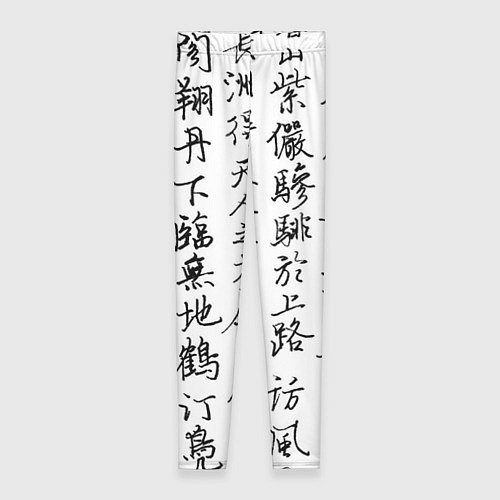 紫儼驂騑於上路訪風
長洲得天人
閣翔丹下臨無地鶴汀鳧